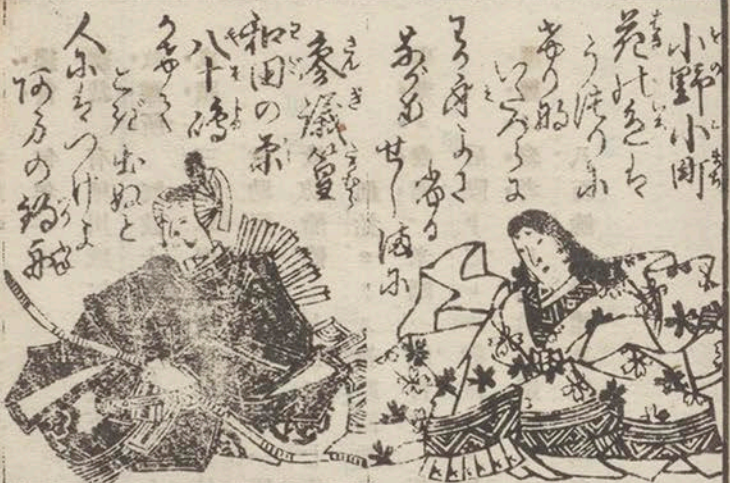 小野小町
花の色は
うつりに
けり那
いたづらに
わが身よに
ふる
ながめ
せし満に
参議篁
和田の原
八十嶋
かけて
こぎ出ぬと
人にはつげよ
阿万の釣舟